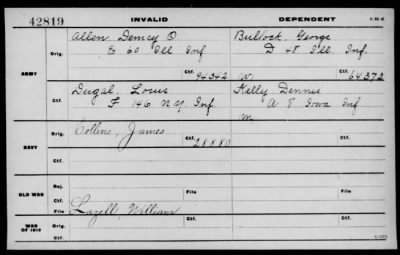 42819 INVALID DEPENDENT
Allen, Demcy O Bullock, George
Orig. E 60 Ill Inf D 48 Ill Inf.
ARMY Ctf. 94342 W. Ctf. 64372
Dugal, Louis Kelly Dennis
Ctf. F 146 N.Y. Inf A 8 Iowa Inf
M
Collins, James
Orig. Ctf. 28880
NAVY
Ctf.
Rej. File Ctf.
OLD WAR
File
Lazell, William
WAR OF 1812 Orig. Ctf.